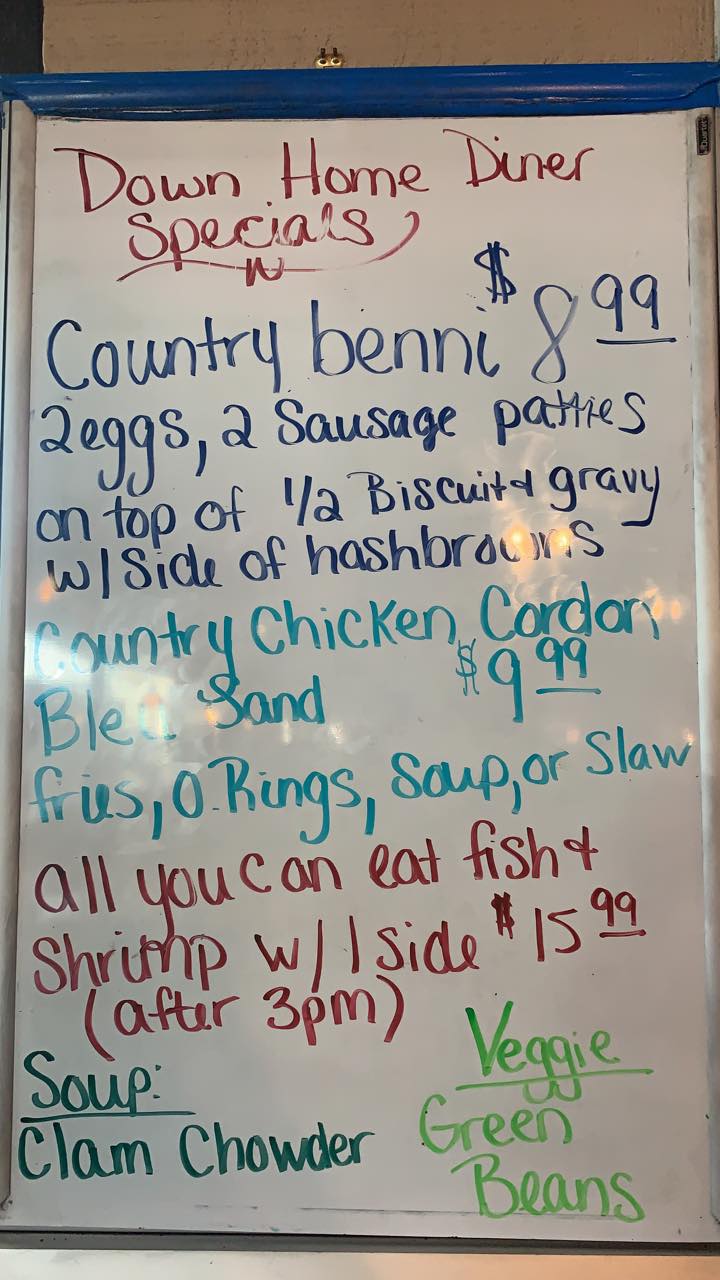 Down Home Diner
Specials
Country benni $8.99
2 eggs, 2 Sausage patties
on top of 1/2 Biscuit & gravy
w/ Side of hashbrowns
Country Chicken Cordon
Bleu Sand $9.99
fries, O.Rings, Soup, or Slaw
all you can eat fish &
Shrimp w/ 1 side $15.99
(after 3pm)
Soup:
Clam Chowder
Veggie
Green
Beans